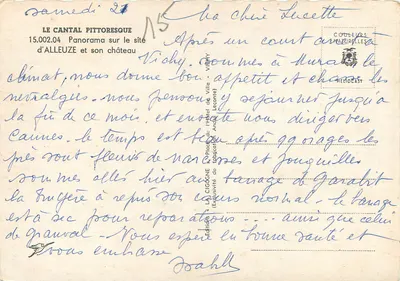 samedi 21
15
LE CANTAL PITTORESQUE
15.002.04 Panorama sur le site
d'ALLEUZE et son château
COULEURS
NATURELLES
Ma chère Lucette
Après un court arrêt à
Vichy, sommes à Murat le
climat, nous donne bon appétit et chasse les
névralgies. nous pensons y séjourner jusqu'à
la fin de ce mois, et ensuite nous diriger vers
Cannes. le temps est beau après qq orages les
près sont fleuris de narcisses et jonquilles
sommes allés hier au barrage de Garabit
la truyère a repris son cours normal. le barrage
est à sec pour réparations --- ainsi que celui
de granval. Nous espère en bonne santé et
vous embrasse